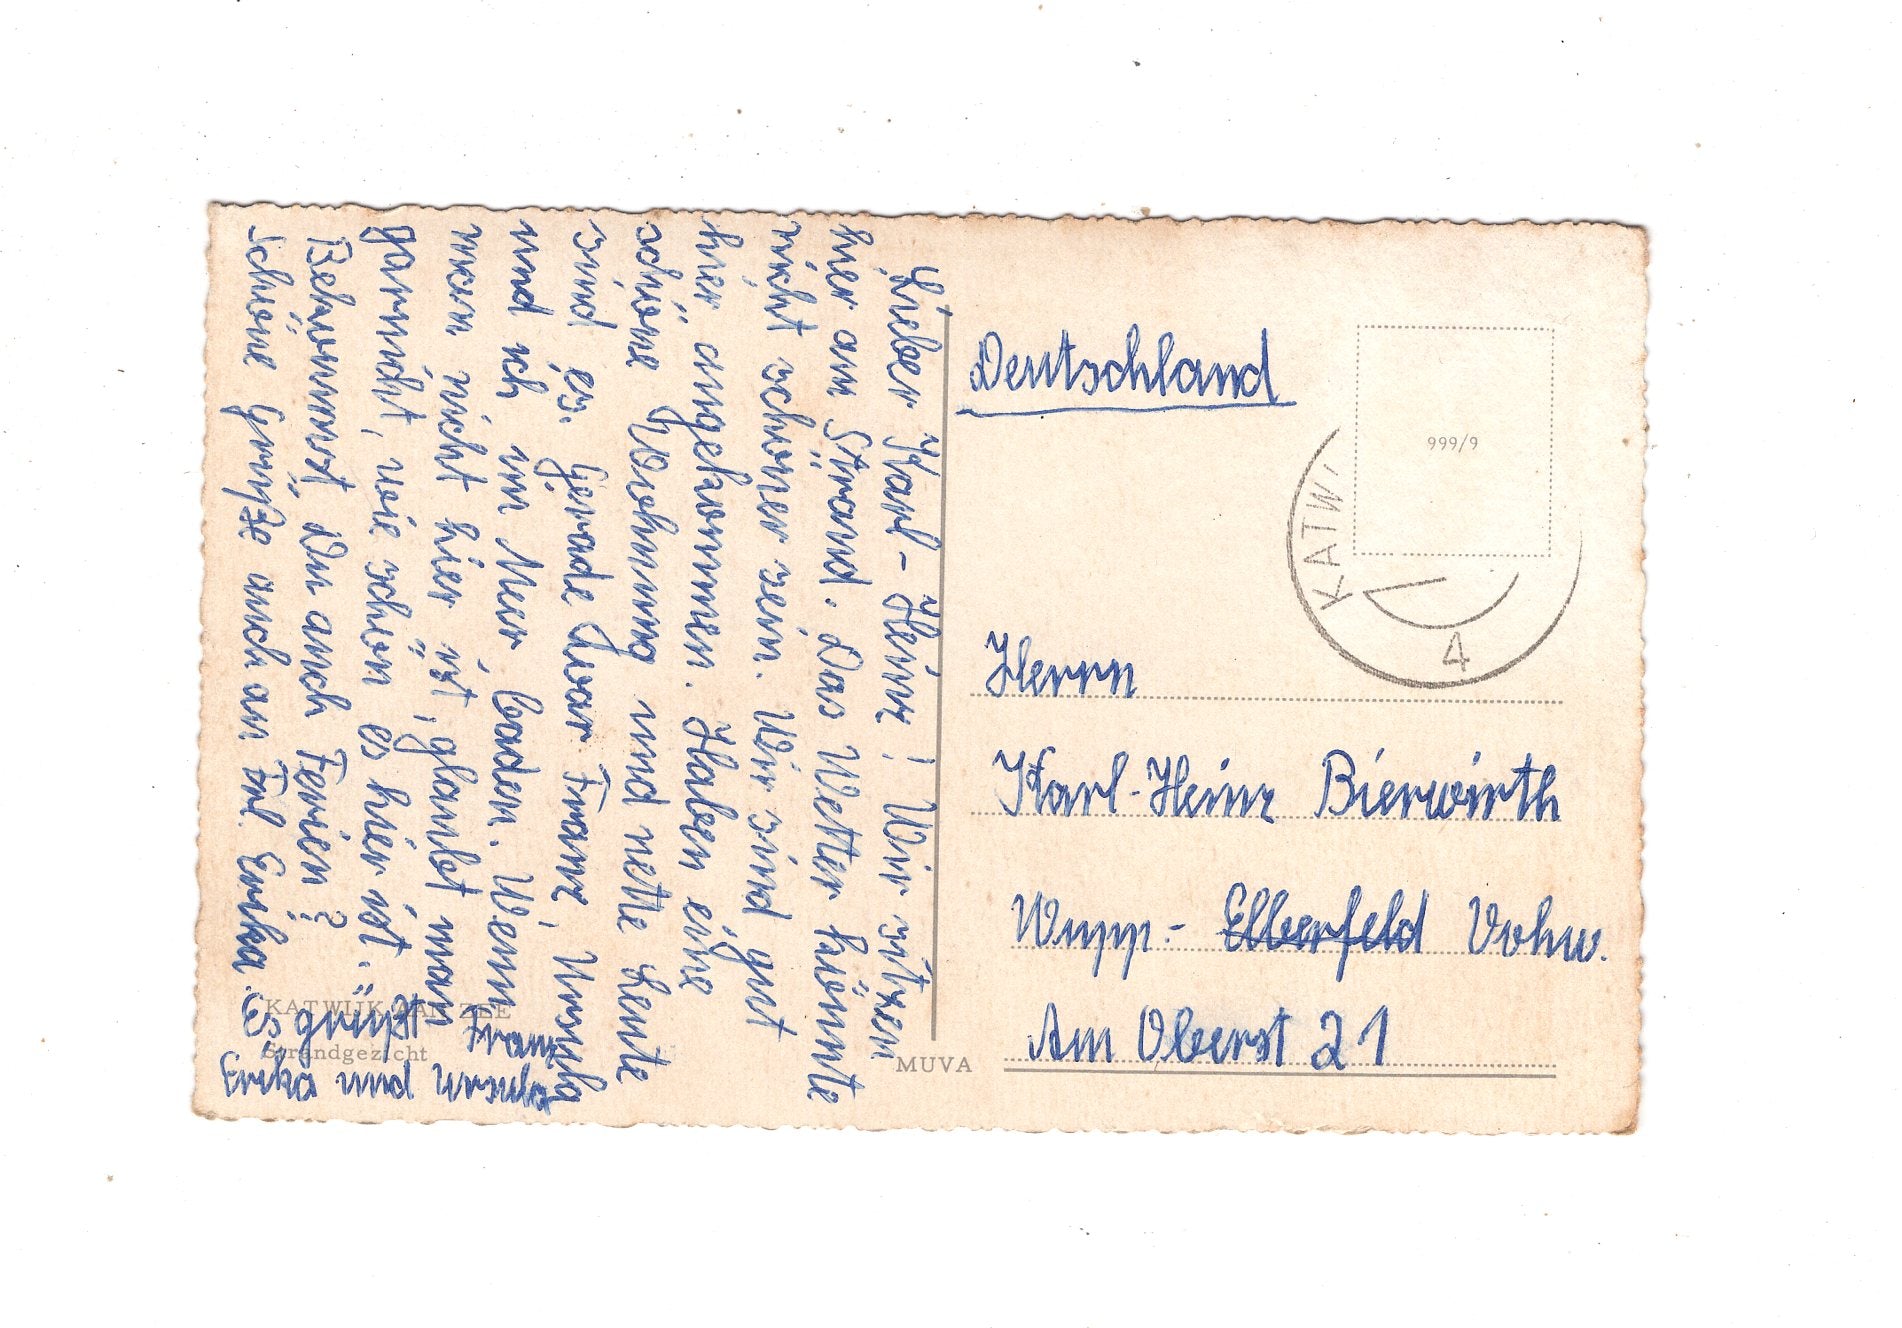 Lieber Karl-Heinz! Wir sitzen
hier am Strand. Das Wetter könnte
nicht schöner sein. Wir sind gut
hier angekommen. Haben eine
schöne Wohnung und nette Leute
sind es. Gerade war Franz, Ursula
und ich im Meer baden. Wenn
man nicht hier ist, glaubt man
garnicht, wie schön es hier ist.
Bekommst Du auch Ferien?
Schöne Grüße auch an Frl. Erika. Es grüßt Franz
Erika und Ursula
KATWIJK AAN ZEE
Strandgezicht
MUVA
Deutschland
999/9
KATW
4
Herrn
Karl-Heinz Bierwirth
Wupp.- Elberfeld Vohw.
Am Oberst 21